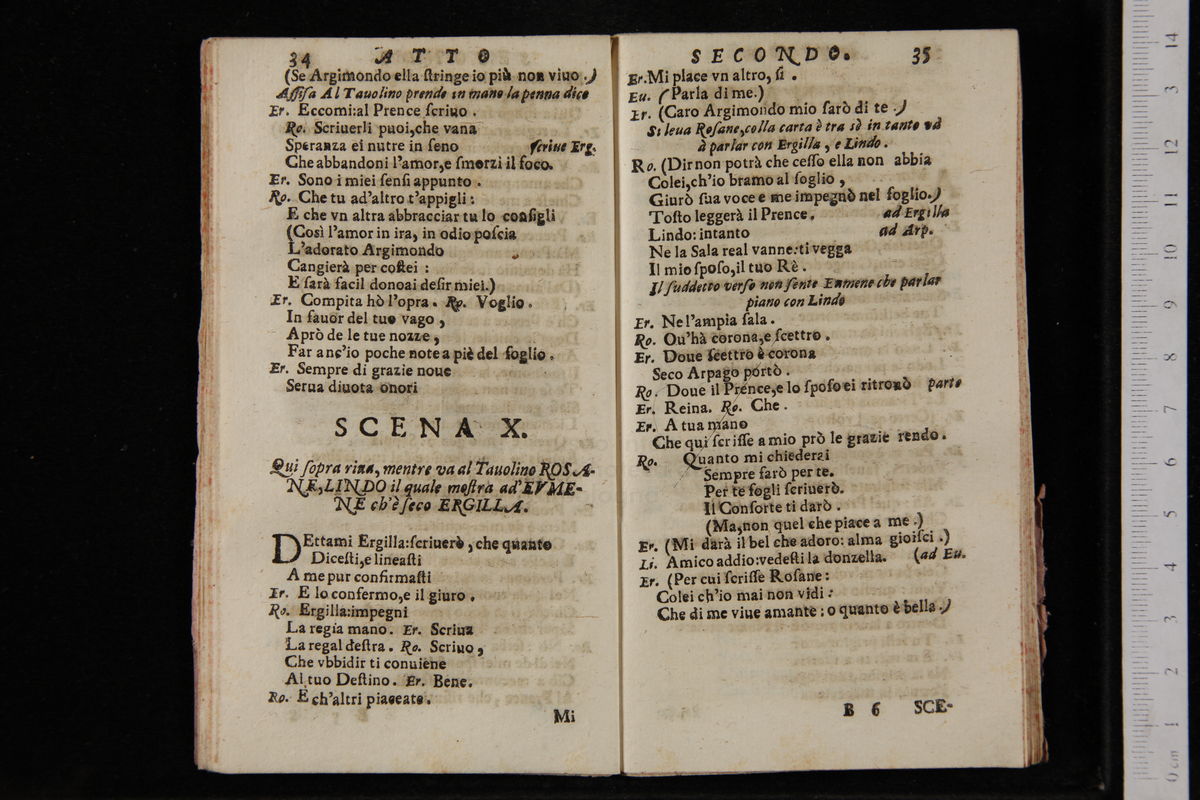 34 ATTO
(Se Argimondo ella ſtringe io più non viuo.)
Aſſiſa Al Tauolino prende in mano la penna dice
Er. Eccomi:al Prence ſcriuo.
Ro. Scriuerli puoi,che vana
Speranza ei nutre in ſeno ſcriue Erg.
Che abbandoni l'amor,e ſmorzi il foco.
Er. Sono i miei ſenſi appunto.
Ro. Che tu ad'altro t'appigli:
E che vn altra abbracciar tu lo conſigli
(Così l'amor in ira, in odio poſcia
L'adorato Argimondo
Cangierà per coſtei:
E ſarà facil donoai deſir miei.)
Er. Compita hò l'opra. Ro. Voglio.
In fauor del tuo vago,
Aprò de le tue nozze,
Far anc'io poche note a piè del foglio.
Er. Sempre di grazie noue
Serua diuota onori
SCENA X.
Qui ſopra riua, mentre va al Tauolino ROSA-
NE,LINDO il quale moſtra ad'EVME-
NE ch'è ſeco ERGILLA.
DEttami Ergilla:ſcriuerò, che quanto
Diceſti,e lineaſti
A me pur confirmaſti
Er. E lo confermo,e il giuro.
Ro. Ergilla:impegni
La regia mano. Er. Scriua
La regal deſtra. Ro. Scriuo,
Che vbbidir ti conuiene
Al tuo Deſtino. Er. Bene.
Ro. E ch'altri piaceate.
Mi
SECONDO. 35
Er.Mi piace vn altro, ſi.
Eu. (Parla di me.)
Er. (Caro Argimondo mio ſarò di te.)
Si leua Roſane,colla carta è tra sè in tanto và
à parlar con Ergilla, e Lindo.
Ro. (Dir non potrà che ceſſo ella non abbia
Colei,ch'io bramo al ſoglio,
Giurò ſua voce e me impegnò nel foglio.)
Toſto leggerà il Prence. ad Ergilla
Lindo: intanto ad Arp.
Ne la Sala real vanne:ti vegga
Il mio ſpoſo,il tuo Rè.
Il ſuddetto verſo non ſente Eumene che parlar
piano con Lindo
Er. Ne l'ampia ſala.
Ro. Ou'hà corona,e ſcettro.
Er. Doue ſcettro è corona
Seco Arpago portò.
Ro. Doue il Prence,e lo ſpoſo ei ritrouò parte
Er. Reina. Ro. Che.
Er. A tua mano
Che qui ſcriſſe a mio prò le grazie rendo.
Ro. Quanto mi chiederai
Sempre farò per te.
Per te fogli ſcriuerò.
Il Conſorte ti darò.
(Ma,non quel che piace a me.)
Er. (Mi darà il bel che adoro: alma gioiſci.)
Li. Amico addio:vedeſti la donzella. (ad Eu.
Er. (Per cui ſcriſſe Roſane:
Colei ch'io mai non vidi:
Che di me viue amante: o quanto è bella.)
B 6 SCE-